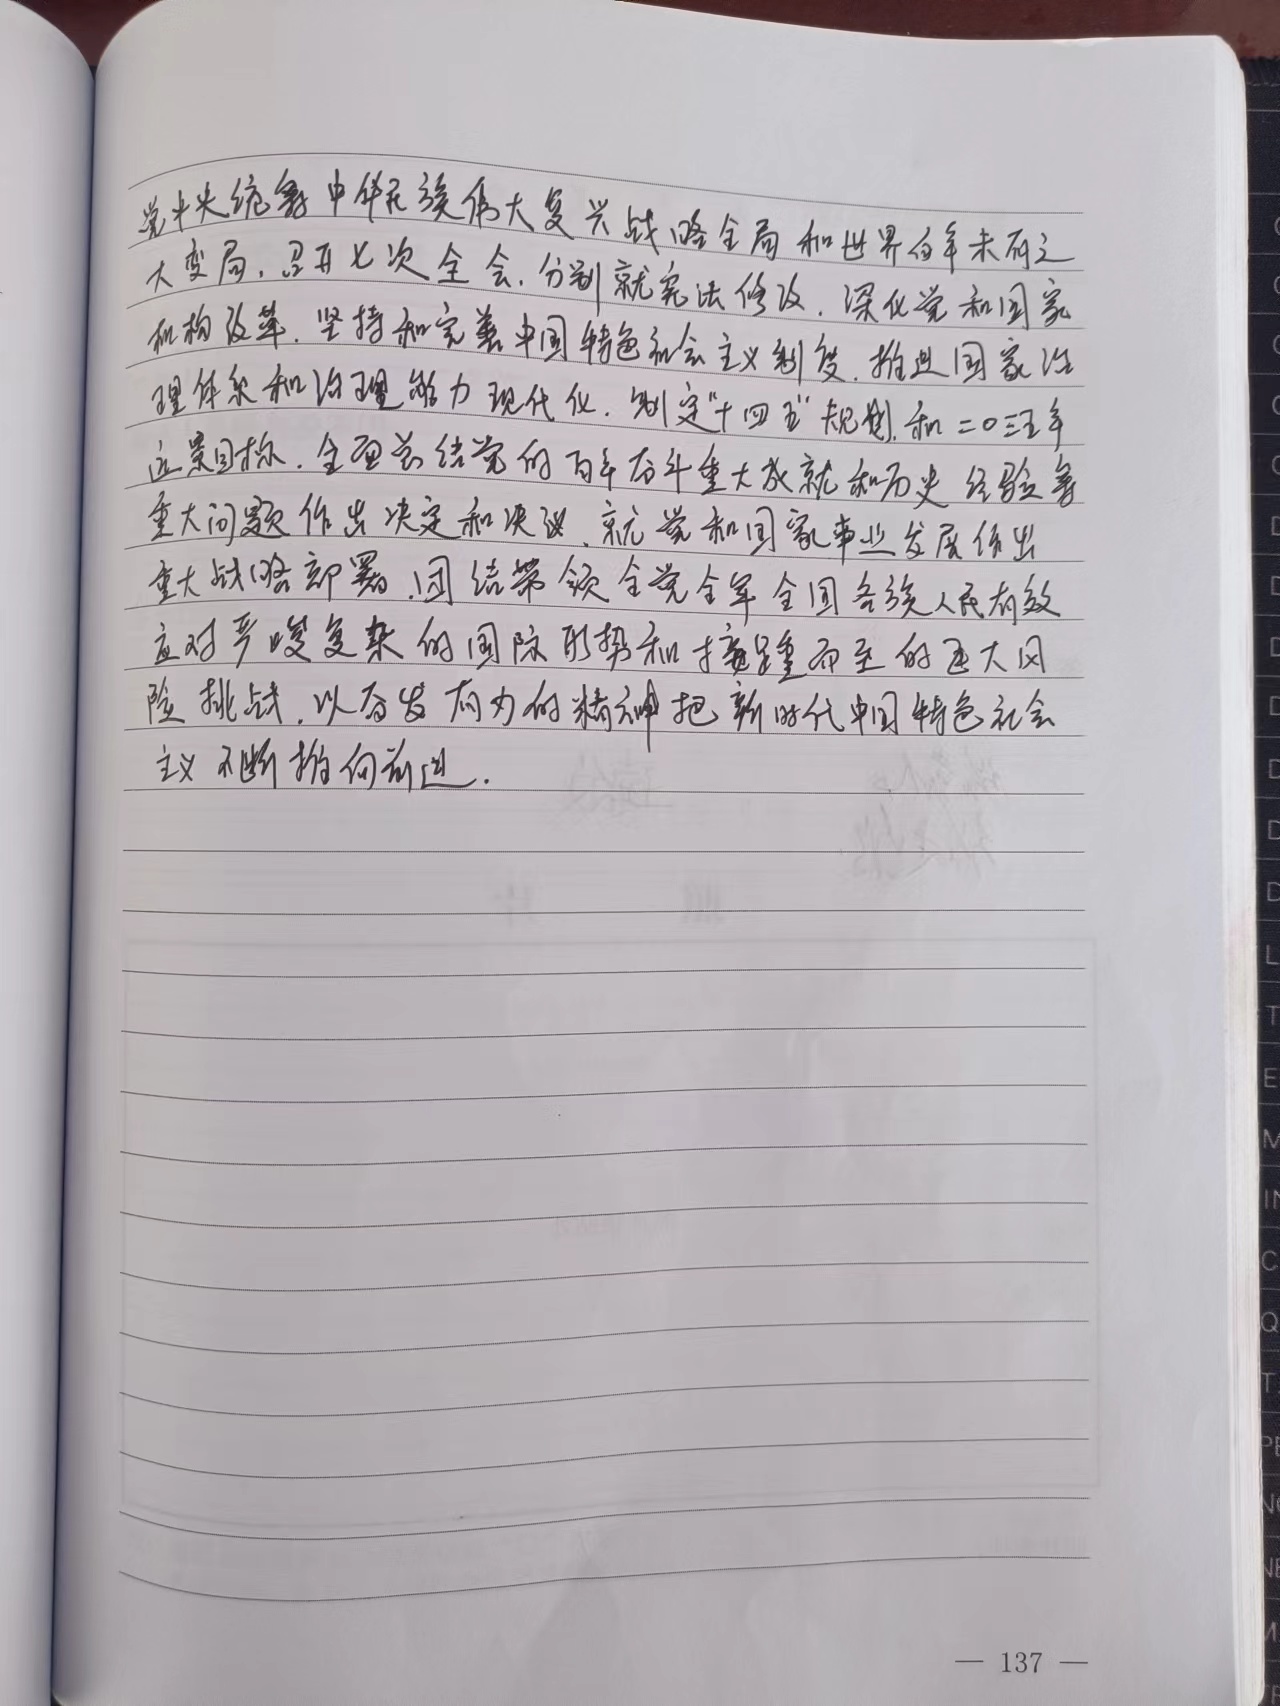 党中央统筹中华民族伟大复兴战略全局和世界百年未有之
大变局，召开七次全会，分别就宪法修改，深化党和国家
机构改革，坚持和完善中国特色社会主义制度，推进国家治
理体系和治理能力现代化，制定"十四五"规划和二〇三五年
远景目标，全面总结党的百年奋斗重大成就和历史经验等
重大问题作出决定和决议，就党和国家事业发展作出
重大战略部署，团结带领全党全军全国各族人民有效
应对严峻复杂的国际形势和接踵而至的巨大风
险挑战，以奋发有为的精神把新时代中国特色社会
主义不断推向前进.
— 137 —